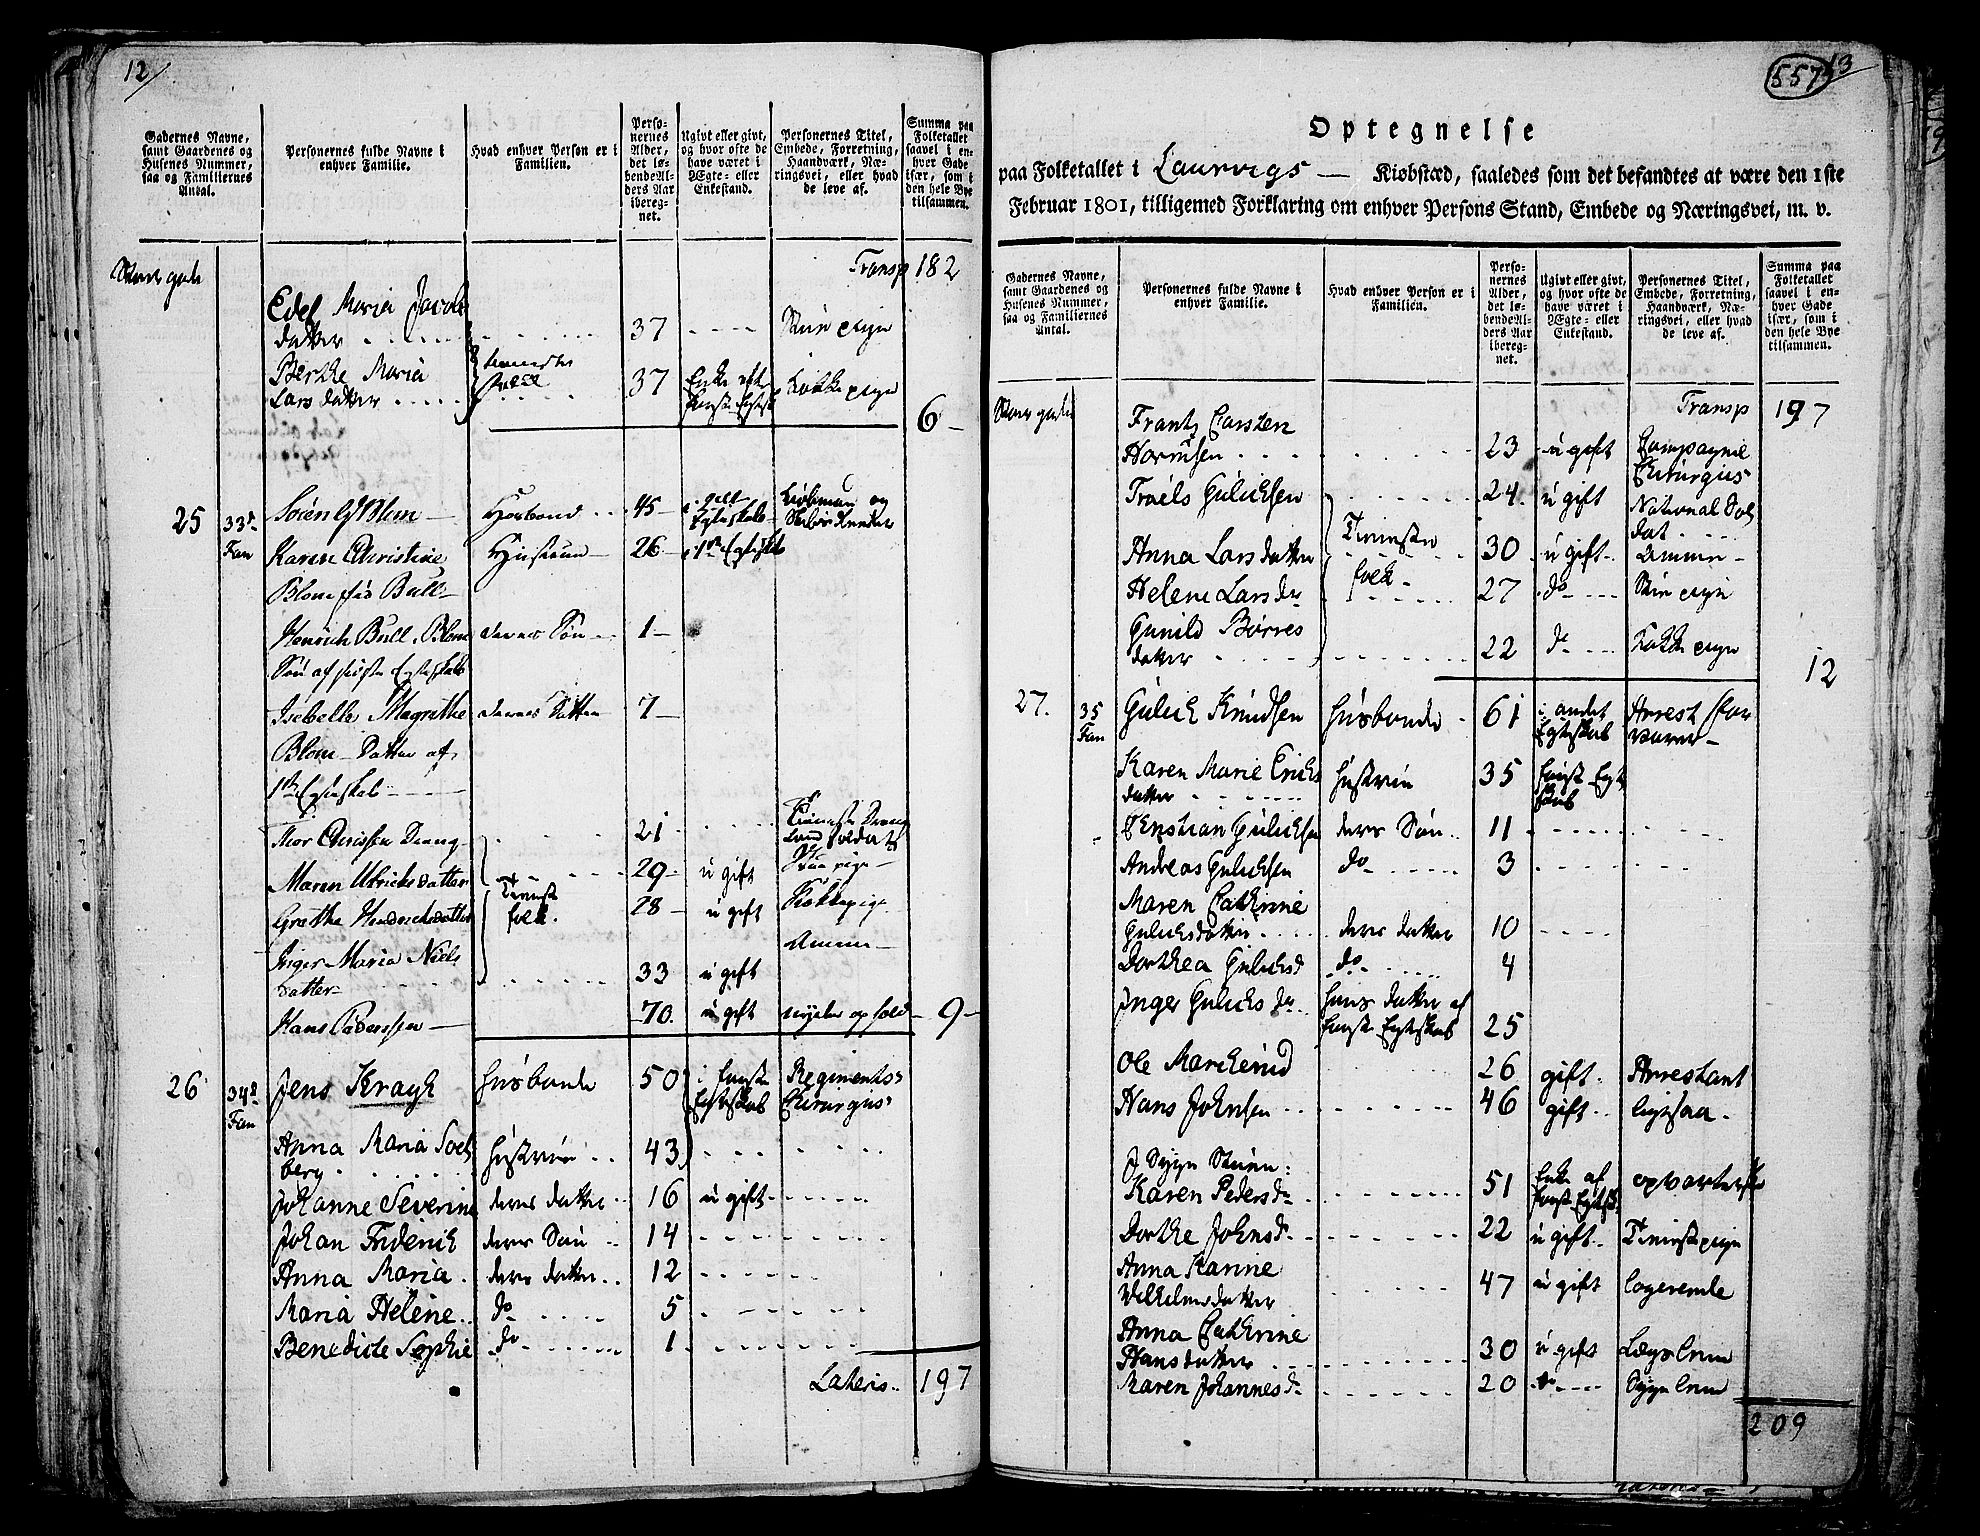 12
Gadernes Navne,
samt Gaardenes og
Husenes Nummer,
saa og Familiernes
Antal.
Personernes fulde Navne i
enhver Familie.
Hvad enhver Person er i
Familien.
Perso-
nernes
Alder,
det lø-
bende Al-
ders Aar
ibereg-
net.
Ugivt eller givt,
og hvor ofte de
have været i
Ægte- eller
Enkestand.
Personernes Titel,
Embede, Forretning,
Haandværk, Næ-
ringsvei, eller hvad
de leve af.
Summa paa
Folketallet
saavel i en-
hver Gade
især, som i
den hele Bye
tilsammen.
Transp 182
Edel Maria Jacobs
datter 37
Berthe Maria
Lars datter 37 Enke
6
25 33te Søren Blom Hosbond 45
Fam Karen Christine Hustrue 26 1te Egteskab
Blom født Bull
Henrich Bull Blom deres Søn 1
Søn af sidste Egteskab
Isebella Magrethe deres Datter 7
Blom Datter af
1te Egteskab
Thor Chrissen Dreng 21
Maren Ulrichsdatter 29 ugift
Grethe Hendrichsdatter Tienist folk. 28 ugift Kokkepige
Inger Maria Niels Amme
datter 33 ugift
Hans Pedersen 70 ugift 9
26 34de Jens Kragh Husbonde 50 i første Regiments
Fam Egteskab Chirurgus
Anna Maria Soel
berg Hustrue 43
Johanne Severine deres datter 16 ugift
Johan Friderich deres Søn 14
Anna Maria deres datter 12
Maria Helene do 5
Benedicte Sophie do 1
Lateris 197
557 13
Optegnelse
paa Folketallet i Laurvigs Kiøbstæd, saaledes som det befandtes at være den 1ste
Februar 1801, tilligemed Forklaring om enhver Persons Stand, Embede og Næringsvei, m. v.
Gadernes Navne,
samt Gaardenes og
Husenes Nummer,
saa og Familiernes
Antal.
Personernes fulde Navne i
enhver Familie.
Hvad enhver Person er i
Familien.
Perso-
nernes
Alder,
det lø-
bende Al-
ders Aar
ibereg-
net.
Ugivt eller givt,
og hvor ofte de
have været i
Ægte- eller
Enkestand.
Personernes Titel,
Embede, Forretning,
Haandværk, Næ-
ringsvei, eller hvad
de leve af.
Summa paa
Folketallet
saavel i en-
hver Gade
især, som i
den hele Bye
tilsammen.
Transp 197
Frantz Carsten
23 ugift Compagnie
Chirurgus
Troels Gulichsen 24 ugift National Sol
dat
Anna Lars datter Tieniste 30 ugift Amme
Helene Lars dr folk 27 do
Gunild Børres
datter 22 do Kokke pige
12
27. 35 Gulich Knudsen Husbonde 61 i andet Arrest for
Fam Egteskab varer
Karen Marie Erichs
datter Hustrue 35 første Egte
skab
Christian Gulichsen deres Søn 11
Andreas Gulichsen do 3
Maren Cathrine
Gulichsdatter deres datter 10
Dorthea Gulichsd do 4
Inger Gulichs dr hans datter af
første Egteskab 25
26 gift Arrestant
Hans Johnsen 46 gift ligesaa
51 Enke af
Karen Pedersdr første Egtesk
Dorthe Johnsdr 22 ugift Tienistepige
Anna Karine
Vilhelmsdatter 47 ugift logerende
Anna Cathrine
Hansdatter 30 ugift
Maren Johannesdr 20 do
209